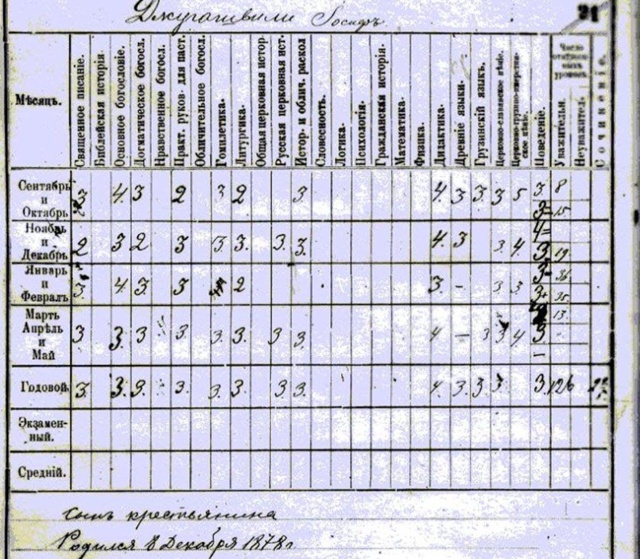 Джугашвили Іосифъ
31
Мѣсяцъ.
Священное писаніе.
Библейская исторія
Основное богословіе.
Догматическое богосл.
Нравственное богосл.
Практ. руков. для паст.
Обличительное богосл.
Гомилетика.
Литургика.
Общая церковная истор.
Русская церковная ист-
Истор. и облич. раскол
Словесность.
Логика.
Психологія.
Гражданская исторія.
Математика.
Физика.
Дидактика.
Древніе языки
Грузинскій языкъ.
Церковно-славянское пѣніе.
Поведеніе.
Число
уроковъ.
Уважительн.
Неуважител.
Сочиненіе.
Сентябрь и Октябрь 4. 3 2 3 2 3. 4. 3 3. 3 5 3. 8
3= 15
Ноябрь и Декабрь 2 3 2 3 3. 3. 3 3 4. 3 3. 4. 4=
3 19
Январь и Февраль 3. 4. 3. 3 2 3. - 3 3. 3=
3 35
Мартъ Апрѣль и Май 3 3. 3 3. 3. 3. 3 3. 4 - 3 3 4 3 13
Годовой. 3. 3. 3. 3. 3. 3 3 3. 4. 3. 3 3 3. 126
Экзамен-
ный.
Средній.
Сынъ крестьянина
Родился 6 Декабря 1878 г.